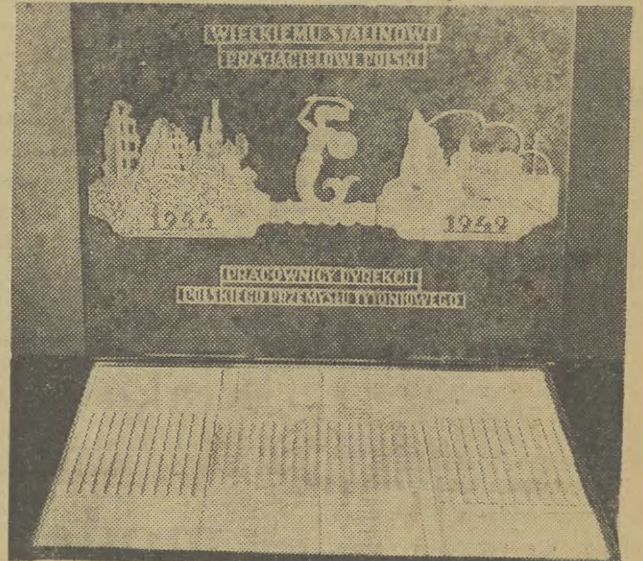 WIELKIEMU STALINOWI
PRZYJACIELOWI POLSKI
1944
1949
PRACOWNICY DYREKCJI
POLSKIEGO PRZEMYSŁU TYTONIOWEGO